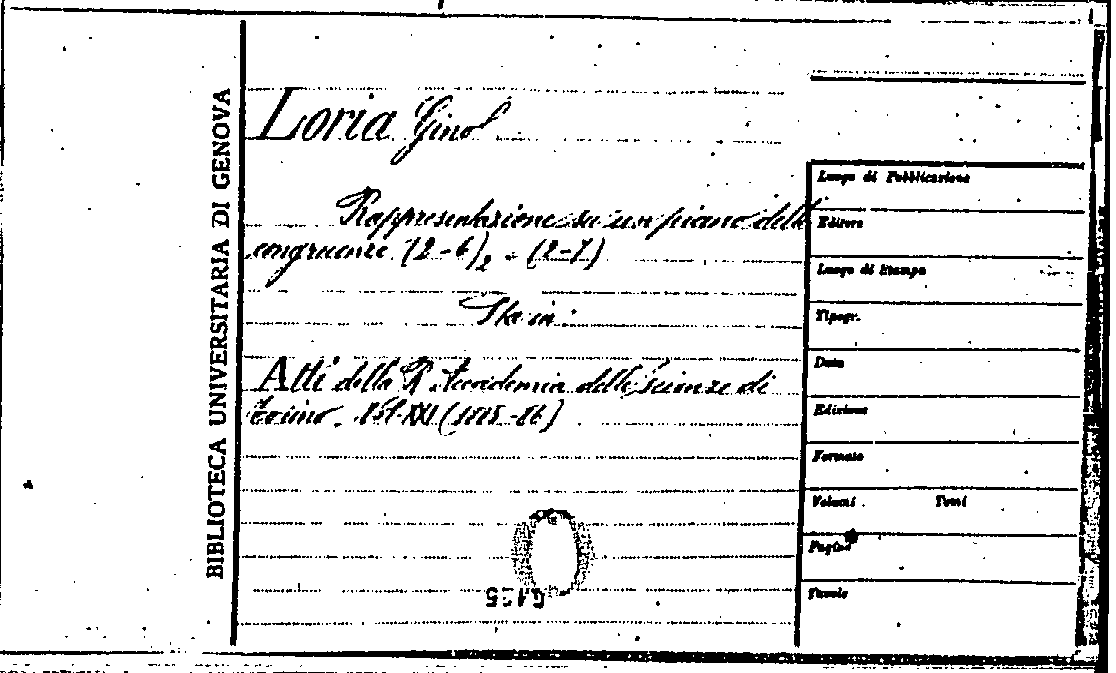 BIBLIOTECA UNIVERSITARIA DI GENOVA
Loria Gino
Rappresentazione su un piano delle
congruenze (2-6)₂ e (2-7)
Sta in:
Atti della R. Accademia delle Scienze di
Torino. Vol. XXI (1885-86)
Luogo di Pubblicazione
Editore
Luogo di Stampa
Tipogr.
Data
Edizione
Formato
Volumi Tomi
Pagine
Tavole